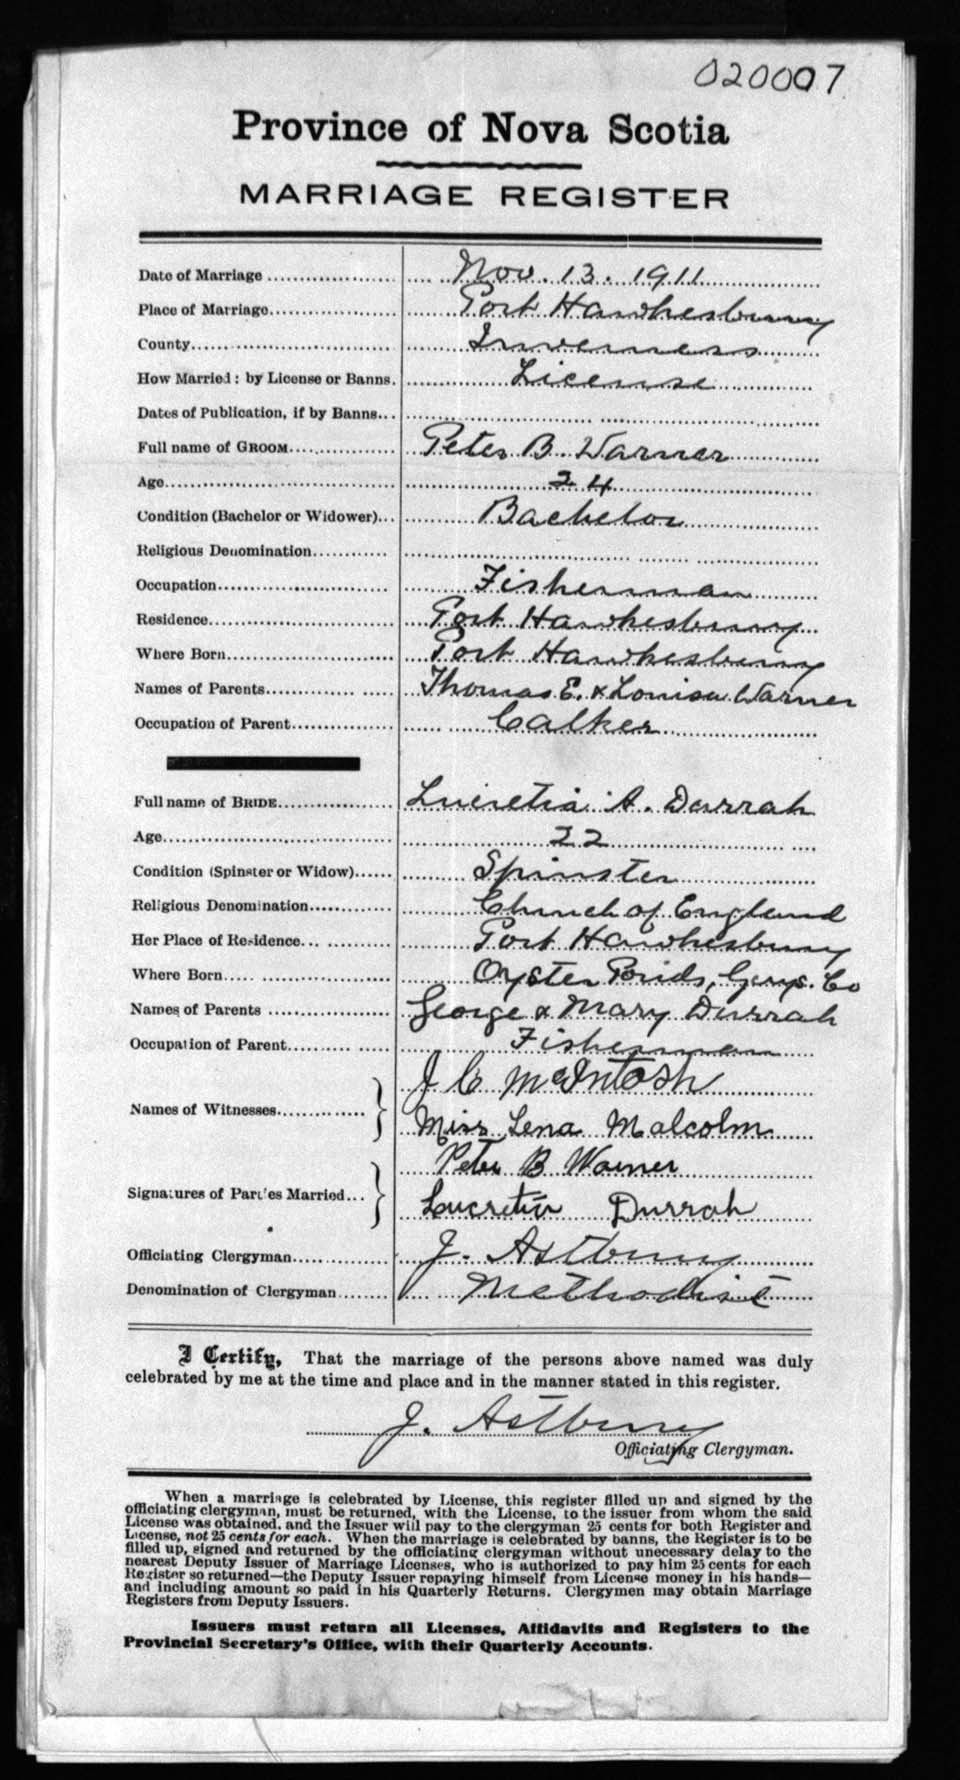 020007
Province of Nova Scotia
MARRIAGE REGISTER
Date of Marriage Nov. 13. 1911
Place of Marriage Port Hawkesbury
County Inverness
How Married: by License or Banns. License
Dates of Publication, if by Banns
Full name of GROOM Peter B. Warner
Age 24
Condition (Bachelor or Widower) Bachelor
Religious Denomination
Occupation Fisherman
Residence Port Hawkesbury
Where Born Port Hawkesbury
Names of Parents Thomas E. & Louisa Warner
Occupation of Parent Calker
Full name of BRIDE Lucretia A. Durrah
Age 22
Condition (Spinster or Widow) Spinster
Religious Denomination Church of England
Her Place of Residence Port Hawkesbury
Where Born Oyster Ponds, Guys. Co
Names of Parents George & Mary Durrah
Occupation of Parent Fisherman
Names of Witnesses J C McIntosh
Miss Lena Malcolm
Signatures of Parties Married Peter B Warner
Lucretia Durrah
Officiating Clergyman J. Astbury
Denomination of Clergyman Methodist
I Certify, That the marriage of the persons above named was duly
celebrated by me at the time and place and in the manner stated in this register.
J. Astbury
Officiating Clergyman.
When a marriage is celebrated by License, this register filled up and signed by the
officiating clergyman, must be returned, with the License, to the issuer from whom the said
License was obtained, and the Issuer will pay to the clergyman 25 cents for both Register and
License, not 25 cents for each. When the marriage is celebrated by banns, the Register is to be
filled up, signed and returned by the officiating clergyman without unecessary delay to the
nearest Deputy Issuer of Marriage Licenses, who is authorized to pay him 25 cents for each
Register so returned—the Deputy Issuer repaying himself from License money in his hands—
and including amount so paid in his Quarterly Returns. Clergymen may obtain Marriage
Registers from Deputy Issuers.
Issuers must return all Licenses, Affidavits and Registers to the
Provincial Secretary's Office, with their Quarterly Accounts.